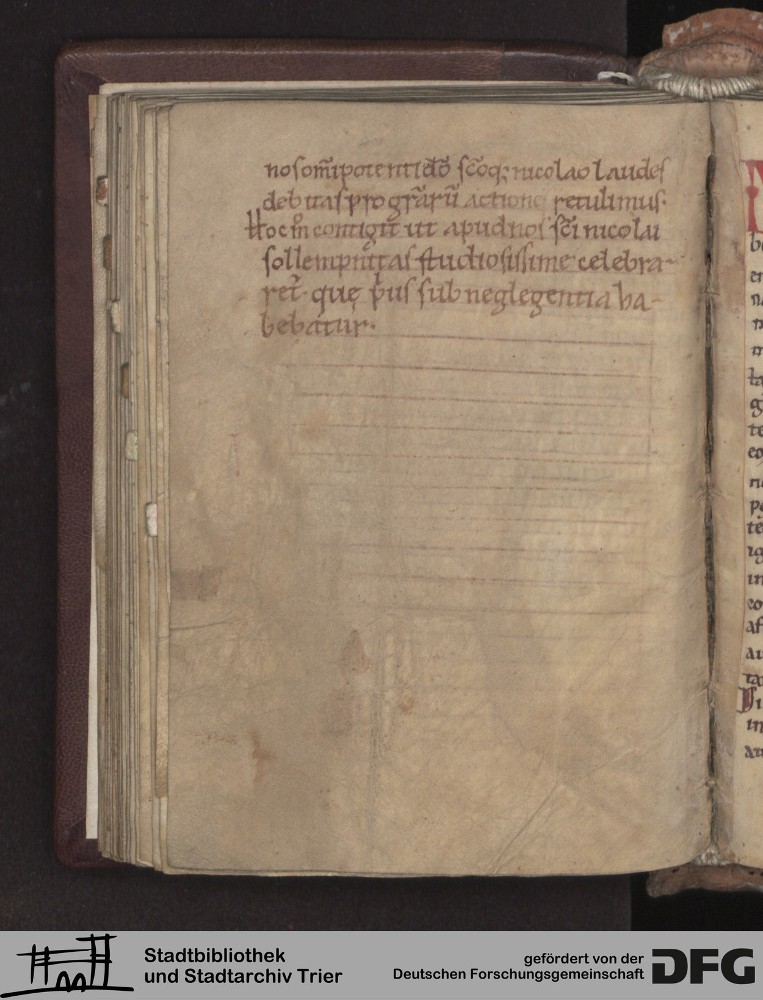 nosom̄ipotentidō sc̄oq; nicolao laudes
debitas pro gr̄arū actione retulimus.
Hoc in contigit ut apud nos sc̄i nicolai
sollempnitas studiosissime celebra-
ret̄. quę p̄us sub neglegentia ha-
bebatur.
be
en
na
la
te
eo
te
ig
in
eo
af
au
ta
in
Stadtbibliothek
und Stadtarchiv Trier
gefördert von der
Deutschen Forschungsgemeinschaft
DFG